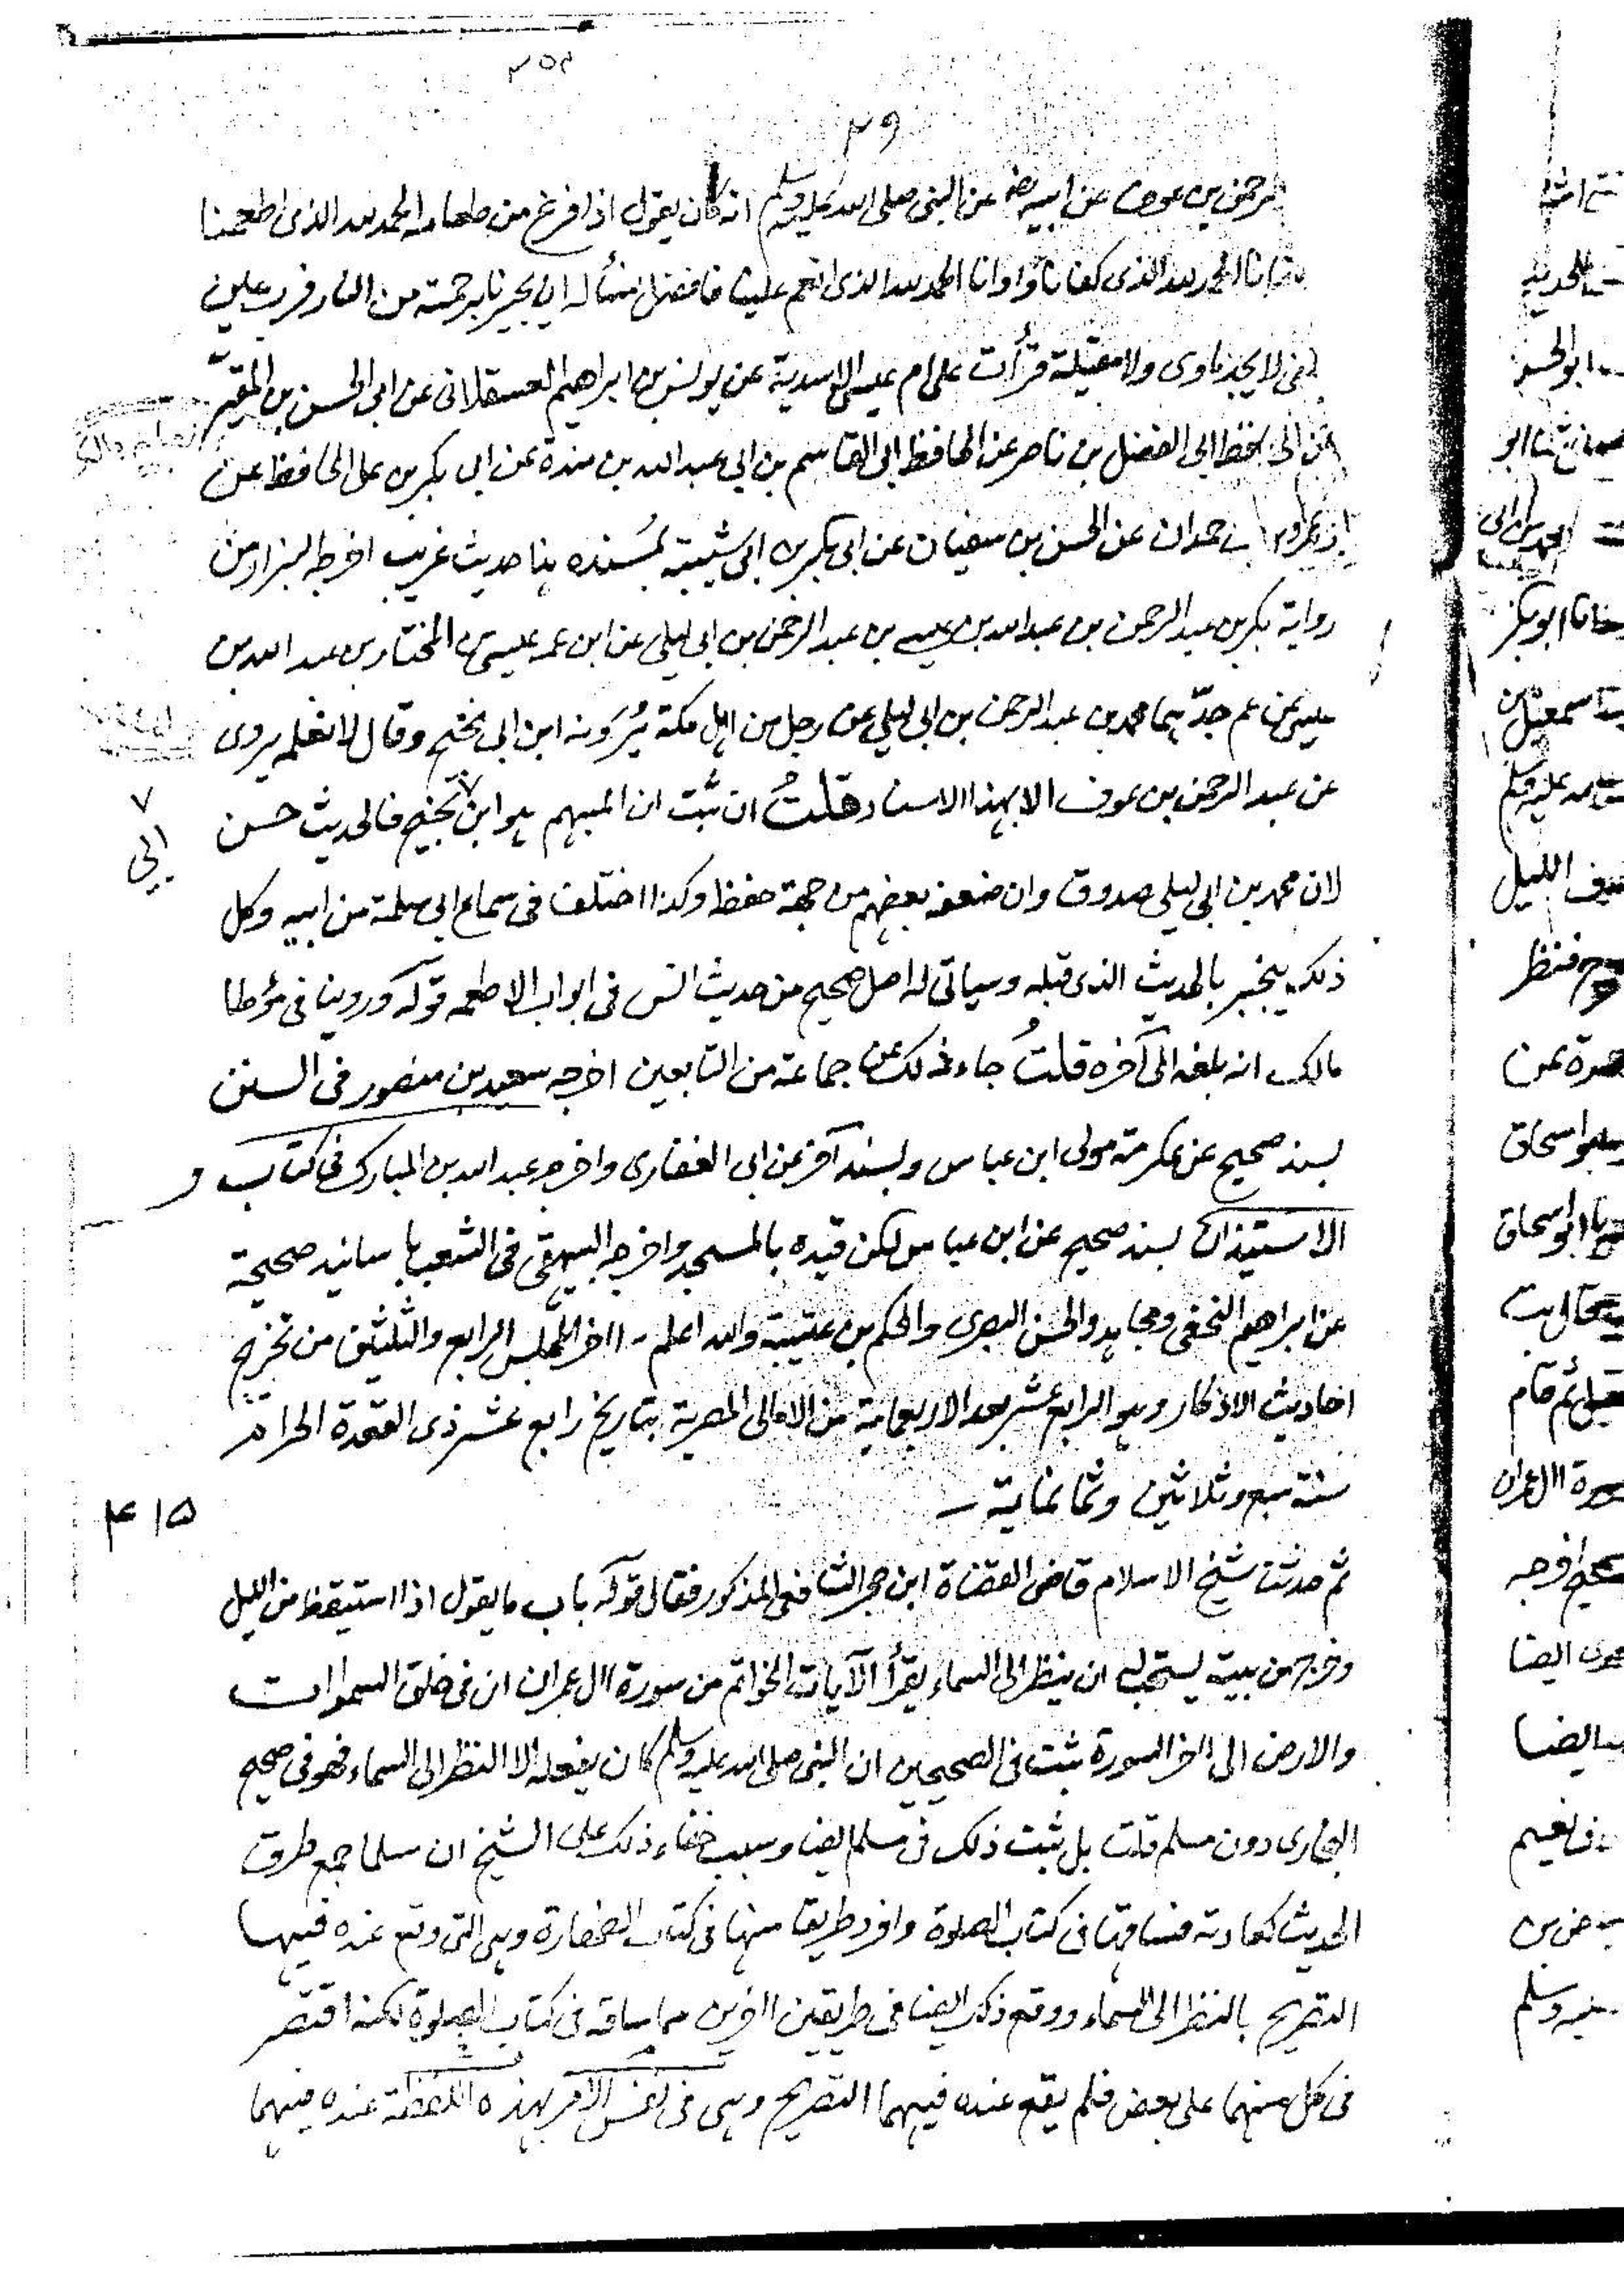 ٣٥٢
٣٩
الرحمن بن عوف عن ابيه رض عن النبى صلى الله عليه وسلم انه كان يقول اذا فرغ من طعامه الحمد لله الذى اطعمنا
وسقانا الحمد لله الذى كفانا وآوانا الحمد لله الذى انعم علينا فافضل نسأله ان يجيرنا برحمته من النار فرب غير
مكفى لا يجد ماوى ولا مقيله قرأت على ام عيسى الاسدية عن يونس بن ابراهيم العسقلانى عن ابى الحسن بن المقيّر
عن الحافظ ابى الفضل بن ناصر عن الحافظ ابى القاسم بن ابى عبد الله بن مندة عن ابى بكر بن على الحافظ عن
ابى عمرو بن حمدان عن الحسن بن سفيان عن ابى بكر بن ابى شيبة بمُسنده هذا حديث غريب اخرجه البزار من
رواية بكر بن عبد الرحمن بن عبد الله بن عيسى بن عبد الرحمن بن ابى ليلى عن ابن عمه عيسى بن المختار بن عبد الله بن
عيسى عن عم جدّيهما محمد بن عبد الرحمن بن ابى ليلى عن رجل من اهل مكة يُرَونه ابن ابى نجيح وقال لا نعلمه يروى
عن عبد الرحمن بن عوف الا بهذا الاسناد قلتُ ان ثبت ان المبهم هو ابن ٧ نجيح فالحديث حسن
٧ ابى
لان محمد بن ابى ليلى صدوق وان ضعفه بعضهم من جهة حفظه وكذا اختلف فى سماع ابى سلمة من ابيه وكل
ذلك ينجبر بالحديث الذى قبله وسياتى له اصل صحيح من حديث انس فى ابواب الاطعمه قوله وروينا فى مؤطا
مالك انه بلغه الى آخره قلتُ جاء ذلك عن جماعة من التابعين اخرجه سعيد بن منصور فى السنن
بسند صحيح عن عكرمة مولى ابن عباس وبسند آخر عن ابى الغفارى واخرجه عبد الله بن المبارك فى كتاب
الاستيذان بسند صحيح عن ابن عباس لكن قيده بالمسجد واخرجه البيهقى فى الشعب باسانيد صحيحة
عن ابراهيم النخعى ومجاهد والحسن البصرى والحكم بن عتيبة والله اعلم - اآخر المجلس الرابع والثلثين من تخريج
احاديث الاذكار وهو الرابع عشر بعد الاربعماية من الامالى المصرية بتاريخ رابع عشر ذى القعدة الحرام
سنة سبع وثلاثين وثمانماية ــ
٤١٥
ثم حدثنا شيخ الاسلام قاضى القضاة ابن حجر الشافعى المذكور فقال قوله باب ما يقول اذا استيقظ من الليل
وخرج من بيته يستحب له ان ينظر الى السماء ويقرأ الآيات الخواتم من سورة اال عمران ان فى خلق السموات
والارض الى اآخر السورة ثبت فى الصحيحين ان النبى صلى الله عليه وسلم كان يفعله الا النظر الى السماء فهو فى صحيح
البخارى دون مسلم قلت بل ثبت ذلك فى مسلم ايضا وسبب خفاء ذلك على الشيخ ان مسلما جمع طرق
الحديث كعادته فساقها فى كتاب الصلوة وافرد طريقا منها فى كتاب الطهارة وهى التى وقع عنده فيها
التصريح بالنظر الى السماء ووقع ذكر ايضا فى طريقين اآخرين مما ساقه فى كتاب الصلوة لكنه اقتصر
فى كل منهما على بعض فلم يقع عنده فيهما التصريح وهى فى نفس الامر بهذه اللفظة عنده فيهما